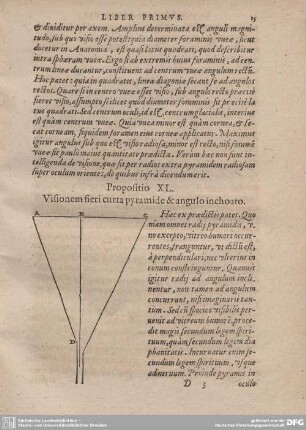 LIBER PRIMVS. 15
& diuiditur per axem. Amplius determinata est anguli magni-
tudo, sub quo visio esse potest: quia diameter foraminis vueæ, sicut
docetur in Anatomia, est quasi latus quadrati, quod describitur
intra sphæram vueæ. Ergo si ab extremis huius foraminis, ad cen-
trum lineæ ducantur, constituent ad centrum vueæ angulum rectū.
Hoc patet: quia in quadrato, linea diagonia secant se ad angulos
rectos. Quare si in centro vueæ esset visio, sub angulo recto præcisè
fieret visio, assumpto scilicet quod diameter foraminis sit præcisè la-
tus quadrati. Sed centrum oculi, id est, centrum glacialis, interius
est quàm centrum vueæ. Quia vuea minor est quàm cornea, & se-
cat corneam, siquidem foramen eius corneæ applicatur. Maximus
igitur angulus sub quo est visio radiosa, minor est recto, nisi forami-
nis diameter maior sit quantitate prædicta. Verùm hæc non sunt in-
telligenda de visione, quæ sit per radios extra pyramidem radiosam
super oculum orientes, de quibus infrà dicendum erit.
Propositio XL.
Visionem fieri curta pyramide & angulo inchoato.
A B C
Hæc ex prædictis patet. Quo
niam omnes radij pyramidis, v-
no excepto, vitreo humori occur-
rentes, franguntur, vt dictū est,
à perpendiculari, nec vlterius in
conum constringuntur. Quamuis
igitur radij ad angulum incli-
nentur, non tamen ad angulum
concurrunt, nisi imaginariè tan-
tùm. Sed ij species visibilis perue-
nit ad vitreum humorē, proce-
dit magis secundum legem spiri-
tuum, quàm secundum legem dia
phanitatis. Incuruatur enim se-
cundum legem spirituum, vsque
ad neruum. Proinde pyramis in
D
D 3 oculo